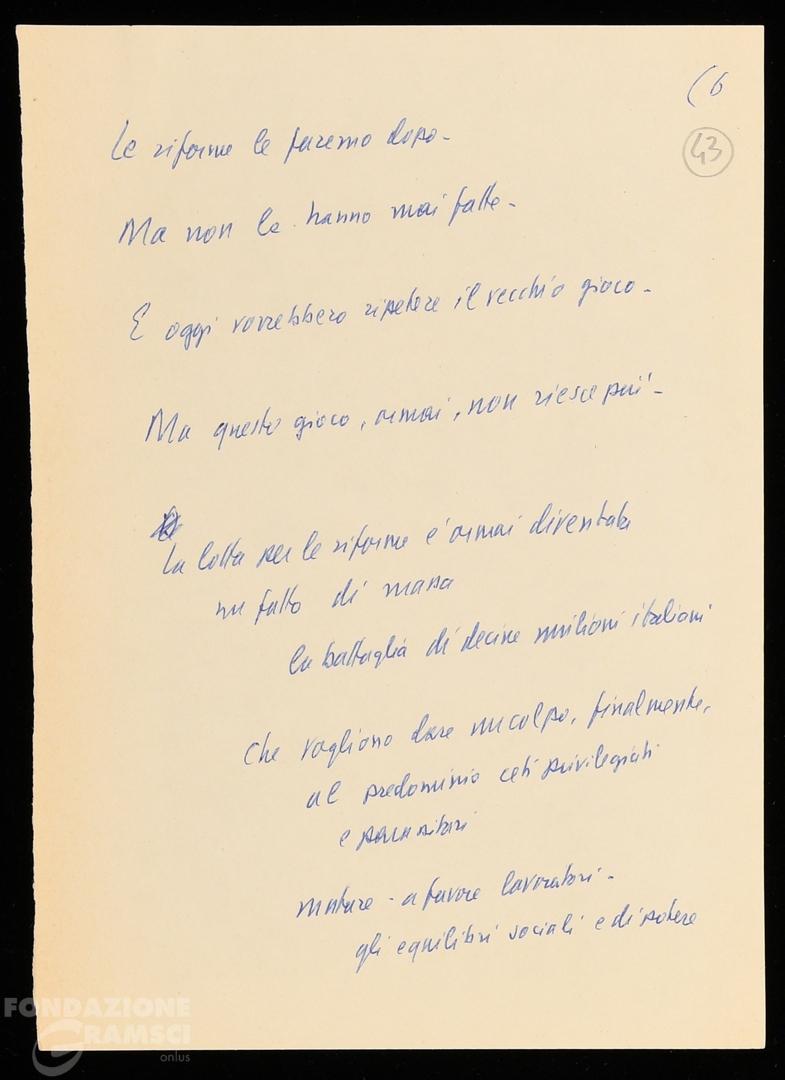 (6
43
Le riforme le faremo dopo -
Ma non le hanno mai fatte -
E oggi vorrebbero ripetere il vecchio gioco -
Ma questo gioco, ormai, non riesce più -
La lotta per le riforme è ormai diventata
un fatto di massa
la battaglia di decine milioni italiani
che vogliono dare un colpo, finalmente,
al predominio ceti privilegiati
e parassitari
mutare - a favore lavoratori -
gli equilibri sociali e di potere
FONDAZIONE
GRAMSCI
onlus